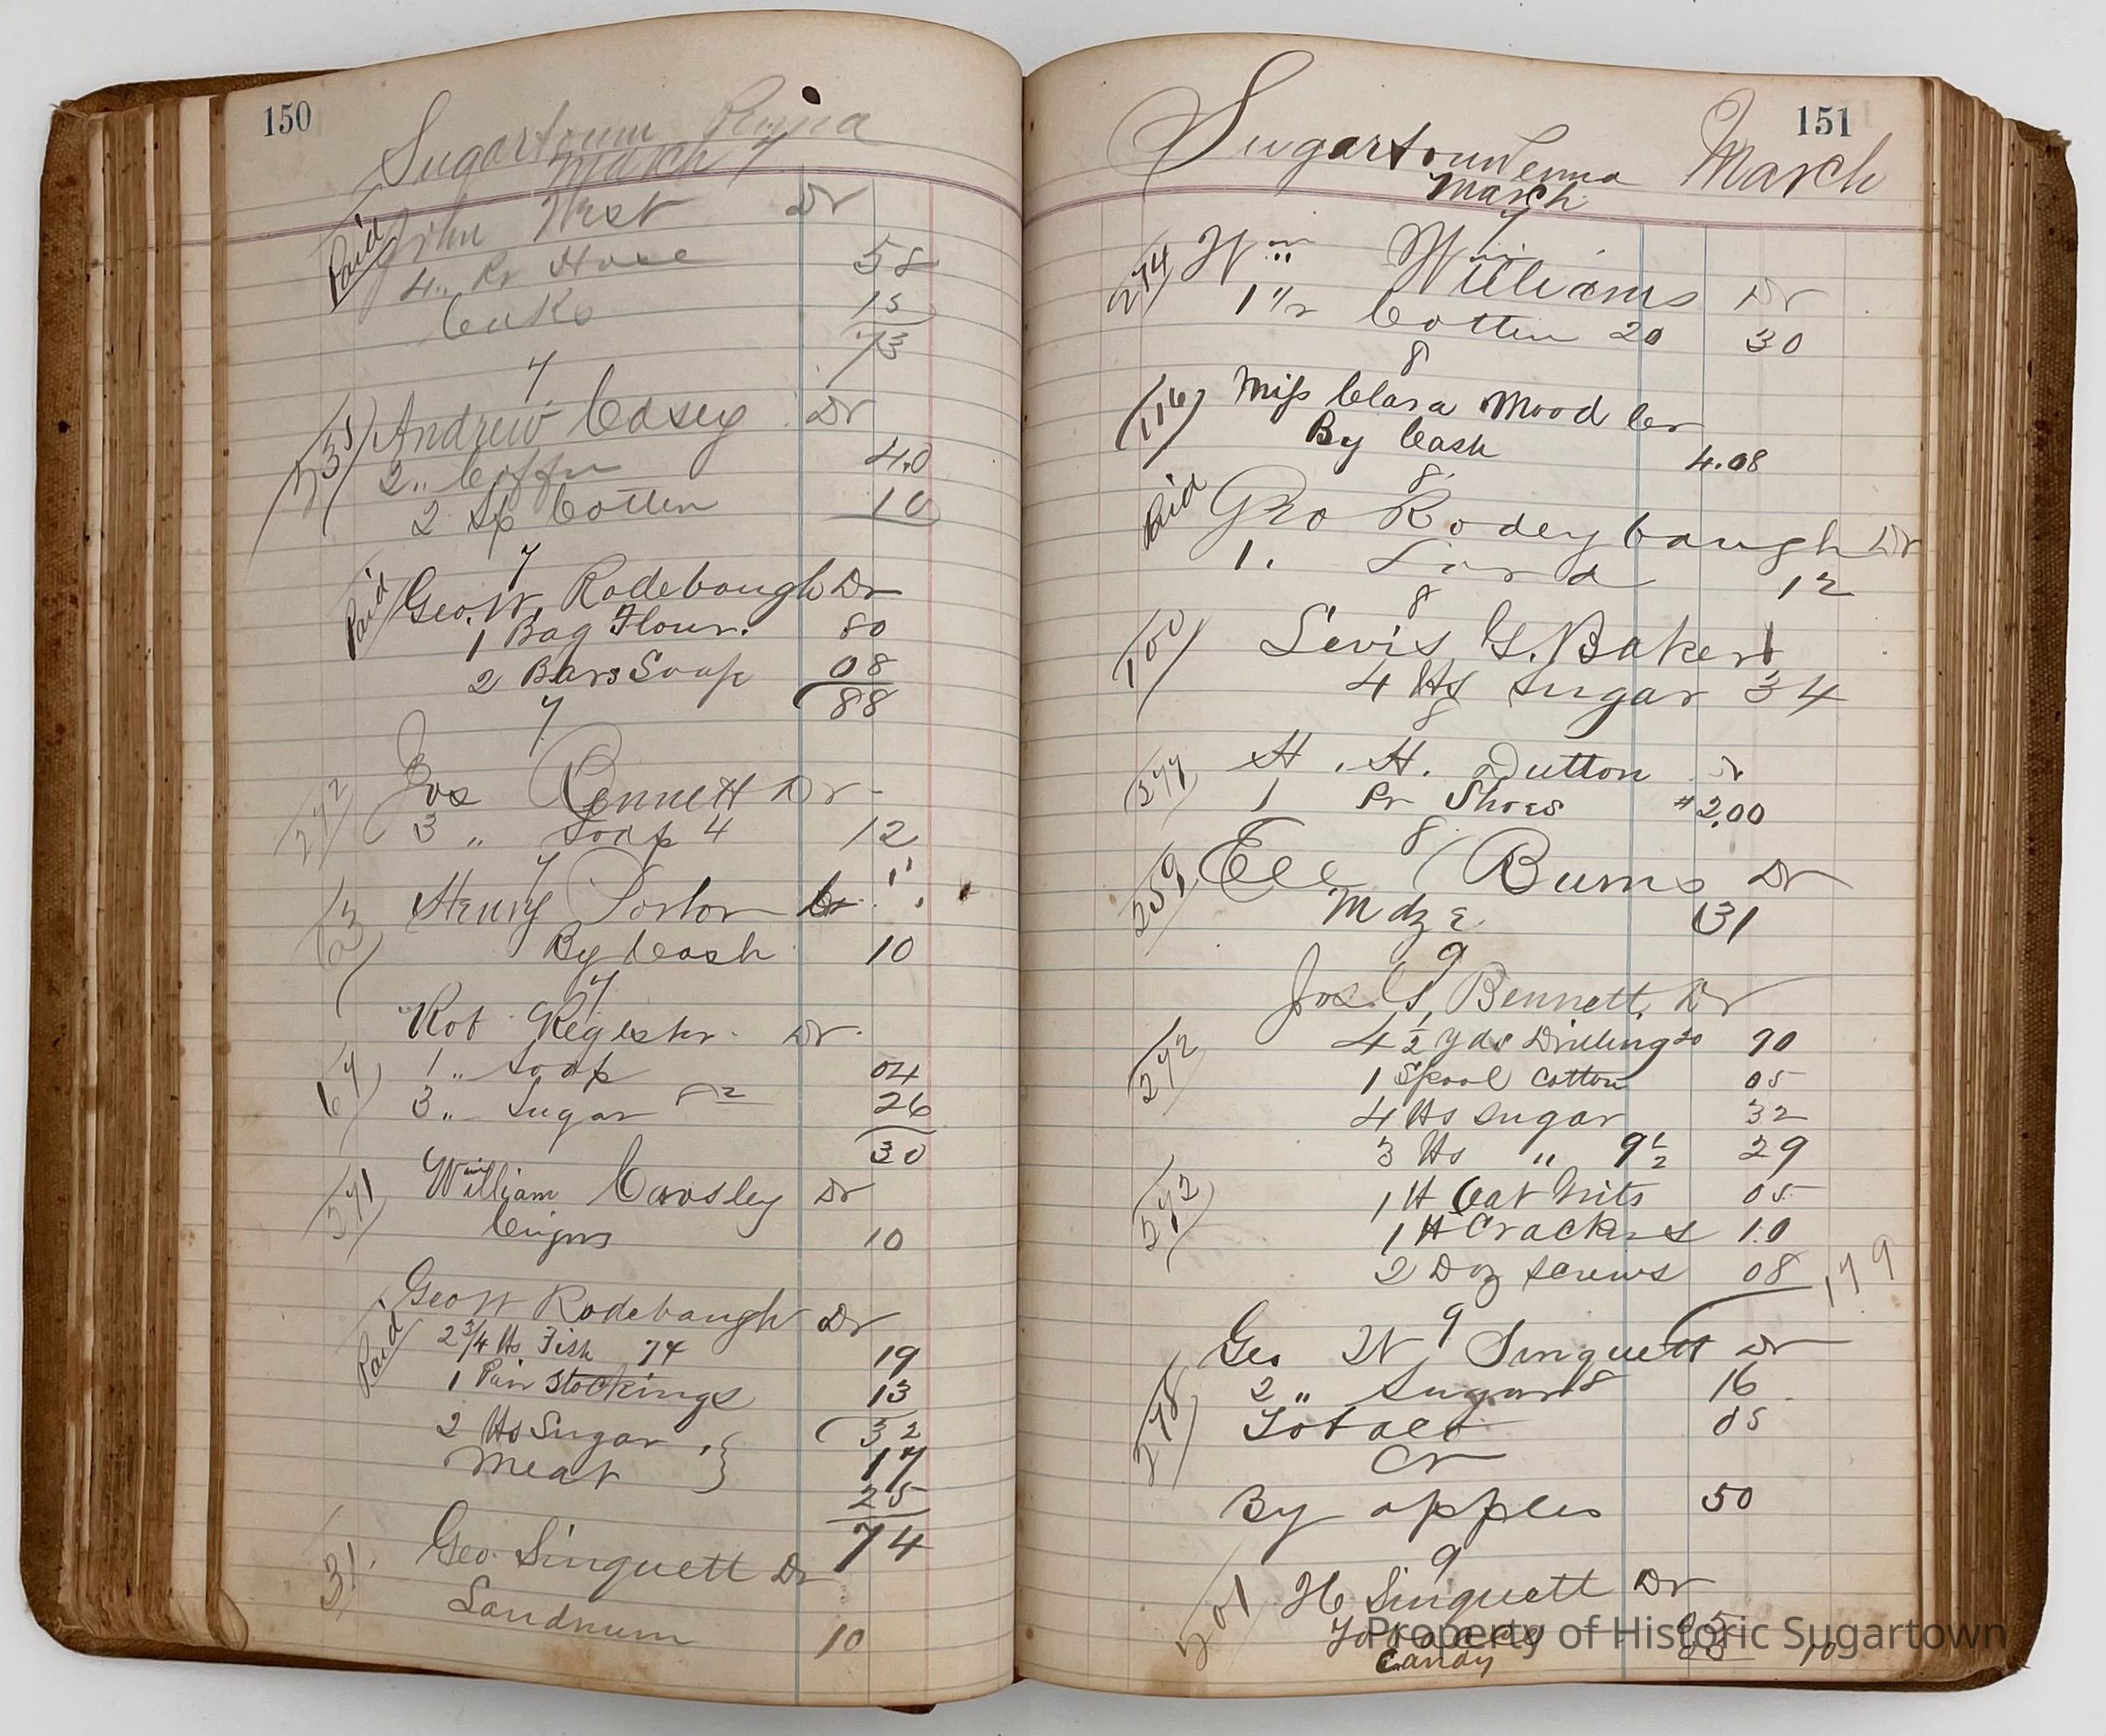 150
Sugartown Penna
March 7
Paid John West Dr
4 Pr Hose 58
Cake 15
73
7
Andrew Casey Dr
2 " Coffee 40
2 Sp Cotten 10
7
Paid Geo. W. Rodebough Dr
1 Bag Flour. 80
2 Bars Soap 08
88
7
272 Jos Bennett Dr
3 " Soap 4 12
7
63 Henry Porlor
By Cash 10
7
Rob Registr. Dr
67 1 " Soap 04
3 " Sugar 26
30
271 William Carsley Dr
Cigars 10
Geo W Rodebaugh Dr
Paid 2 3/4 lbs Fish 74 19
1 Pair Stockings 13
32
2 lbs Sugar 17
Meat 25
74
31 Geo. Singuett Dr
10
151
Sugartown Penna March
March
7
274 Wm Williams Dr
1 1/2 Cotten 20 30
8
116 Miss Clara Mood Cr
By Cash 4.08
8
Paid Geo Rodeybaugh Dr
1. Lard 12
8
150 Levis G. Baker
4 lbs Sugar 34
8
277 H. H. Dutton Dr
1 Pr Shoes #2.00
8
259 Ell Burns Dr
Mdze 31
9
Jos. G. Bennett. Dr
272 4 1/2 yds Drilling 20 90
1 Spool cotton 05
4 lbs sugar 32
3 lbs " 9 1/2 29
272 1 lb Oat Grits 05
1 lb Crackers 10
2 Doz screws 08 179
9
Geo W Singuett Dr
278 2 " Sugar 8 16
Tobacc 05
Cr
By apples 50
9
201 H Singuett Dr
Tobacco 05
Candy 05 10
Property of Historic Sugartown